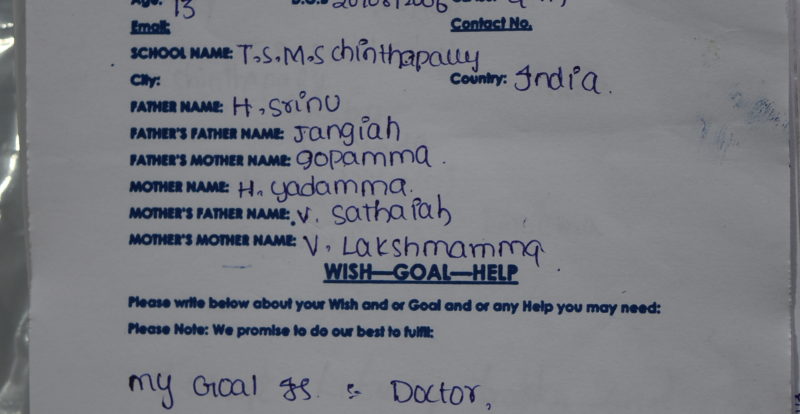 Age: 13 D.O.B
Email: Contact No.
SCHOOL NAME: T.S.M.S chinthapally
City: Country: India.
FATHER NAME: H. Srinu
FATHER'S FATHER NAME: Jangiah
FATHER'S MOTHER NAME: gopamma.
MOTHER NAME: H. yadamma.
MOTHER'S FATHER NAME: V. Sathaiah
MOTHER'S MOTHER NAME: V. Lakshmamma
WISH—GOAL—HELP
Please write below about your Wish and or Goal and or any Help you may need:
Please Note: We promise to do our best to fulfil:
My Goal is : Doctor,